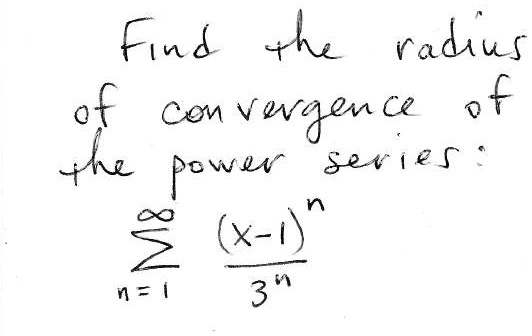 Find the radius
of convergence of
the power series:
∞
∑ (x-1)^n / 3^n
n=1